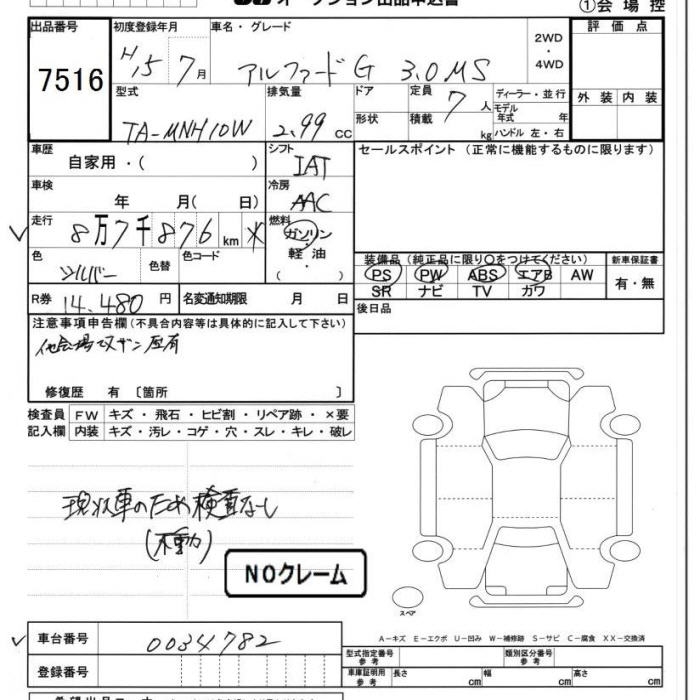 オークション出品申込書
①会場控
出品番号 初度登録年月 車名・グレード 評価点
7516 H15 7月 アルファードG 3.0MS 2WD・4WD
型式 排気量 ドア 定員 7人 ディーラー・並行 外装 内装
形状 積載 kg モデル年式 年
TA-MNH10W 2.99cc ハンドル 左・右
車歴 シフト セールスポイント(正常に機能するものに限ります)
自家用・( ) IAT
車検 冷房
年 月( 日) AAC
走行 8万7千876km 燃料
ガソリン・軽油
色 シルバー 色替 色コード
装備品(純正品に限り○をつけてください) 新車保証書
PS PW ABS エアB AW 有・無
SR ナビ TV カワ
R券 14,480円 名変通知期限 月 日
後日品
注意事項申告欄(不具合内容等は具体的に記入して下さい)
修復歴 有 〔箇所 〕
検査員 FW キズ・飛石・ヒビ割・リペア跡・×要
記入欄 内装 キズ・汚レ・コゲ・穴・スレ・キレ・破レ
現状車のため検査なし
(不動)
NOクレーム
スペア
A-キズ E-エクボ U-凹み W-補修跡 S-サビ C-腐食 XX-交換済
車台番号 0034782
型式指定番号 参考 類別区分番号 参考
登録番号 車庫証明用 参考 長さ cm 幅 cm 高さ cm